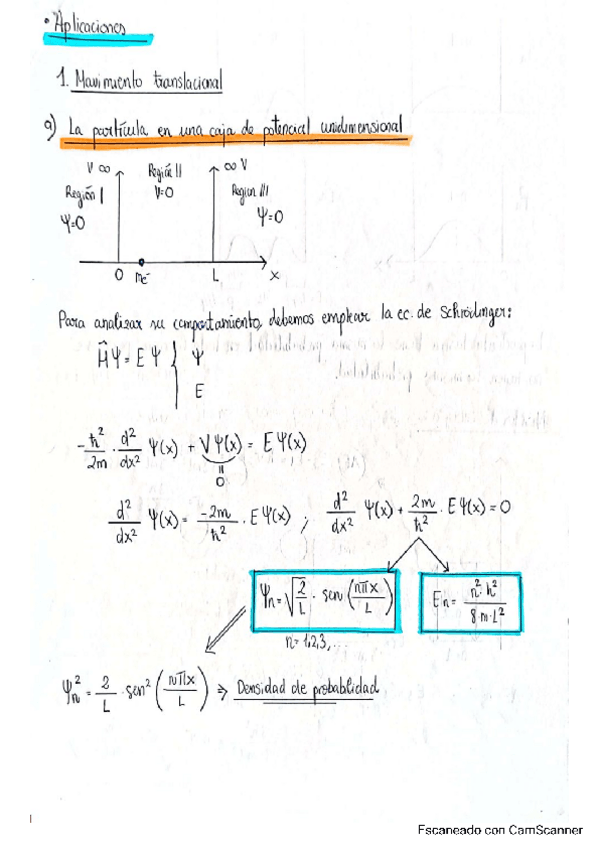 • Aplicaciones
1. Movimiento translacional
a) La partícula en una caja de potencial unidimensional
V ∞ Región II ∞ V
Región I V=0 Region III
Ψ=0 Ψ=0
0 me⁻ L x
Para analizar su comportamiento, debemos emplear la ec. de Schrödinger:
ĤΨ = EΨ { Ψ
E
-ħ²/2m · d²/dx² Ψ(x) + VΨ(x) = EΨ(x)
=
0
d²/dx² Ψ(x) = -2m/ħ² · EΨ(x) ; d²/dx² Ψ(x) + 2m/ħ² · EΨ(x) = 0
Ψn = √2/L · sen (nπx/L) En = n²·h²/8·m·L²
n= 1,2,3,..
Ψn² = 2/L · sen² (nπx/L) ⇒ Densidad de probabilidad
Escaneado con CamScanner